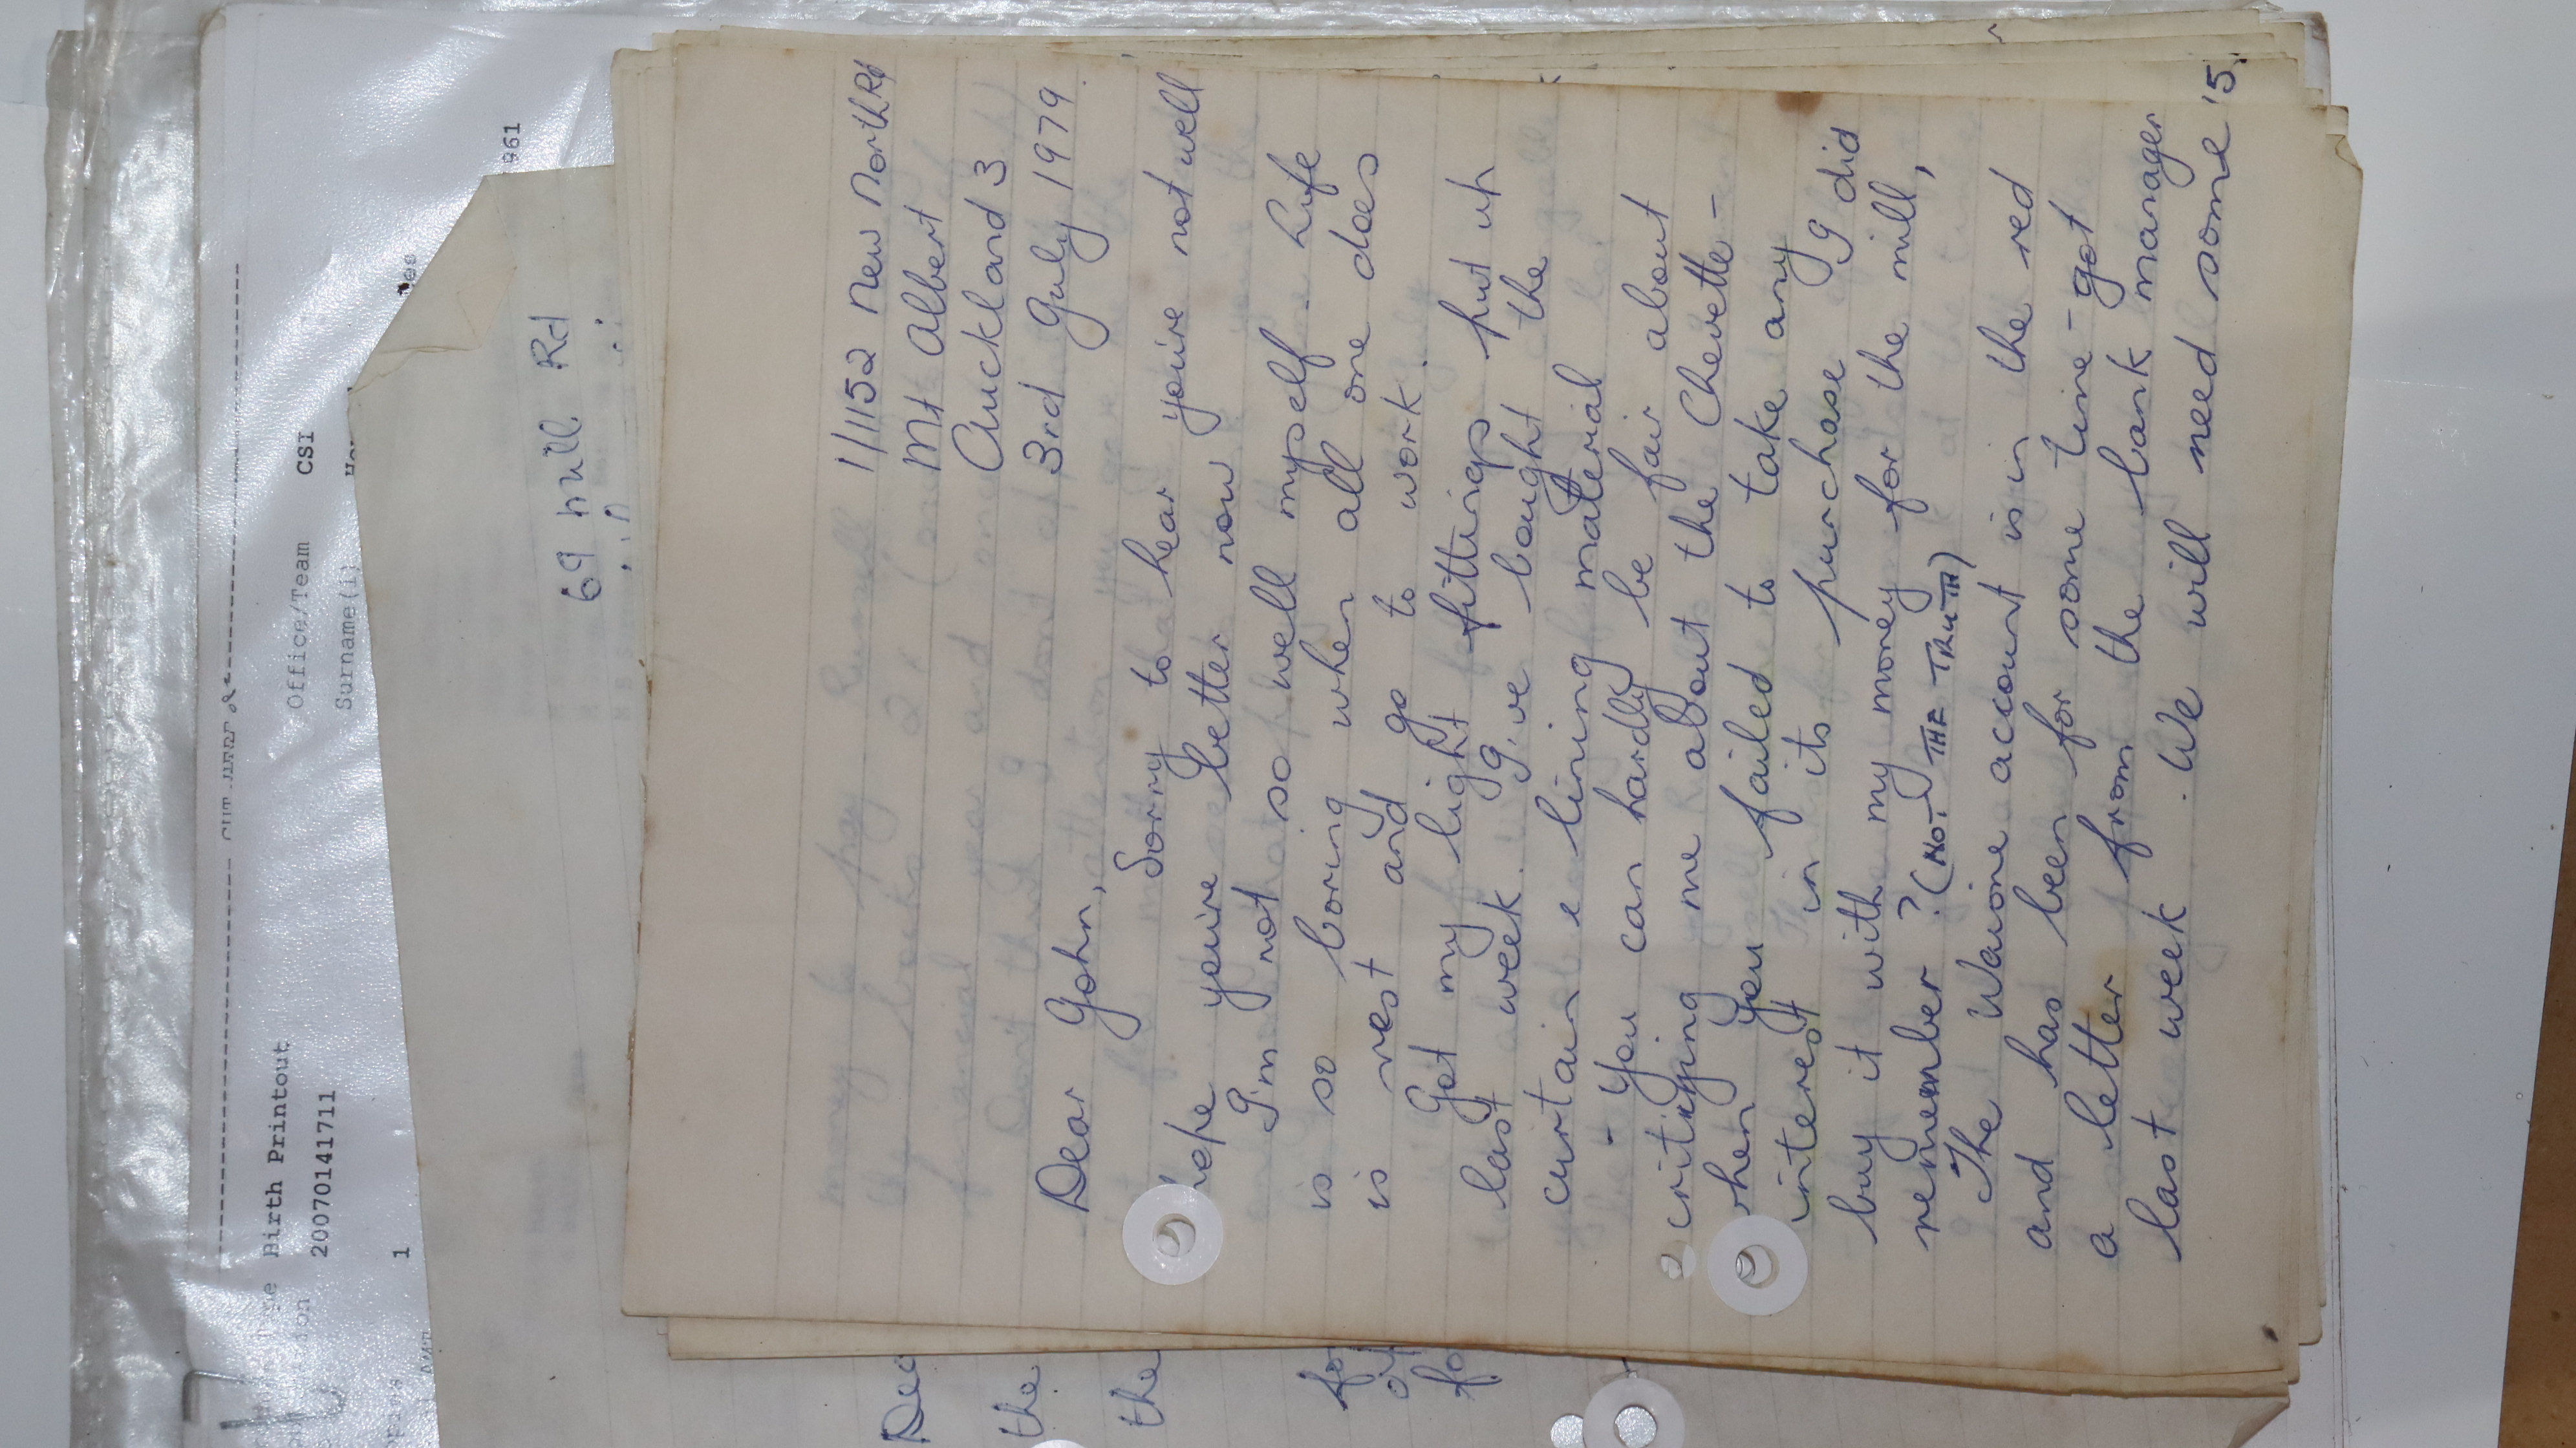 Birth Printout
Office/Team CSI
20070141711
Surname(i)
1
961
69 hill Rd
1/1152 New North Rd
Mt Albert
Auckland 3
3rd July 1979
Dear John,
Sorry to hear you're not well
hope you're better now
I'm not so well myself. Life
is so boring when all one does
is rest and go to work.
Got my light fittings put up
last week. I've bought the
curtain & lining material
- You can hardly be fair about
critizying me about the Chevette -
when you failed to take any
interest in its purchase I did
buy it with my money for the mill,
remember? (NOT THE TRUTH)
The Wairoa account is in the red
and has been for some time - got
a letter from the bank manager
last week. We will need some '5.
Dec
the
the
for
of
fo